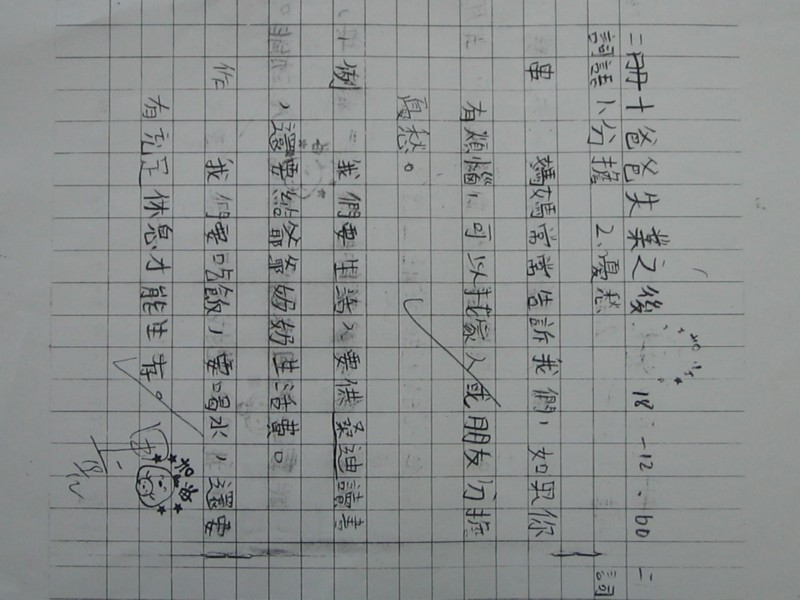 二冊十爸爸失業之後 18-12.60 二
詞語1、分擔 2、憂愁 詞
串 媽媽常常告訴我們，如果你
有煩惱，可以找家人或朋友分擔
憂愁。
例 我們要生活，要供桑迪讀書
，還要給爺爺奶奶生活費。
作 我們要吃飯，要喝水，還要
有充足休息才能生存。